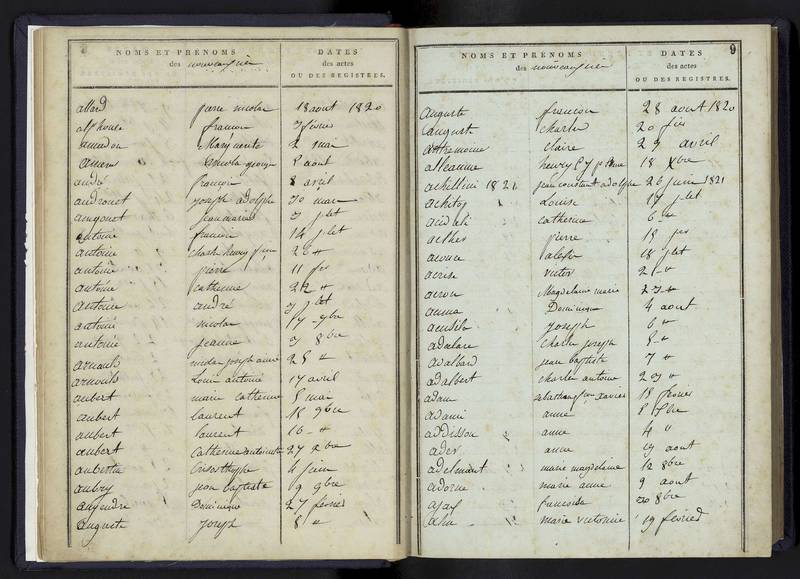 NOMS ET PRÉNOMS DATES
des nouveaux nés des actes
OU DES REGISTRES.
allard pierre nicolas 18 aout 1820
alphonse francois 7 février
amadon Marguerite 2 mai
nicolas george 2 aout
andré françois 8 avril
androuet joseph adolphe 30 mars
angonot jeanmarie 3 jlet
antoine francois 14 jlet
antoine charles henry 26 "
antoine pierre 11
antoine catherine 22 "
antoine andré 3 jlet
antoine nicolas 17 9bre
antoine jeanne 3 8bre
arnould nicolas joseph anne 25 "
arnould Louis antoine 17 avril
aubert marie catherine 5 mai
aubert laurent 18 9bre
aubert laurent 16 "
aubert Catherine antoinette 27 xbre
aubertin 4 juin
aubry jean baptiste 19 9bre
augendre Dominique 27 février
auguste joseph 8 "
9
NOMS ET PRÉNOMS DATES
des nouveaux nés des actes
OU DES REGISTRES.
Auguste francois 28 aout 1820
auguste charles 20
antremoine claire 29 avril
alleaume henry 18 xbre
achillini 1821 jean constant adolphe 26 juin 1821
achitop Louise 17 jlet
acidali catherine 6 "
acther pierre 18
aconce alexis 18 jlet
acrise victor 2 "
acron Magdelaine marie 27 "
acuma Dominique 4 aout
acusilo Joseph 6 "
adaclare charles joseph 8 "
adalbard jean baptiste 7 "
adalbert charles antoine 29 "
adam xavier 18 février
adami anne 8 xbre
addisson anne 4 "
ader anne 19 aout
adelmant marie magdelaine 12 8bre
adorne marie anne 9 aout
ajax francoise 20 8bre
marie victorine 19 février